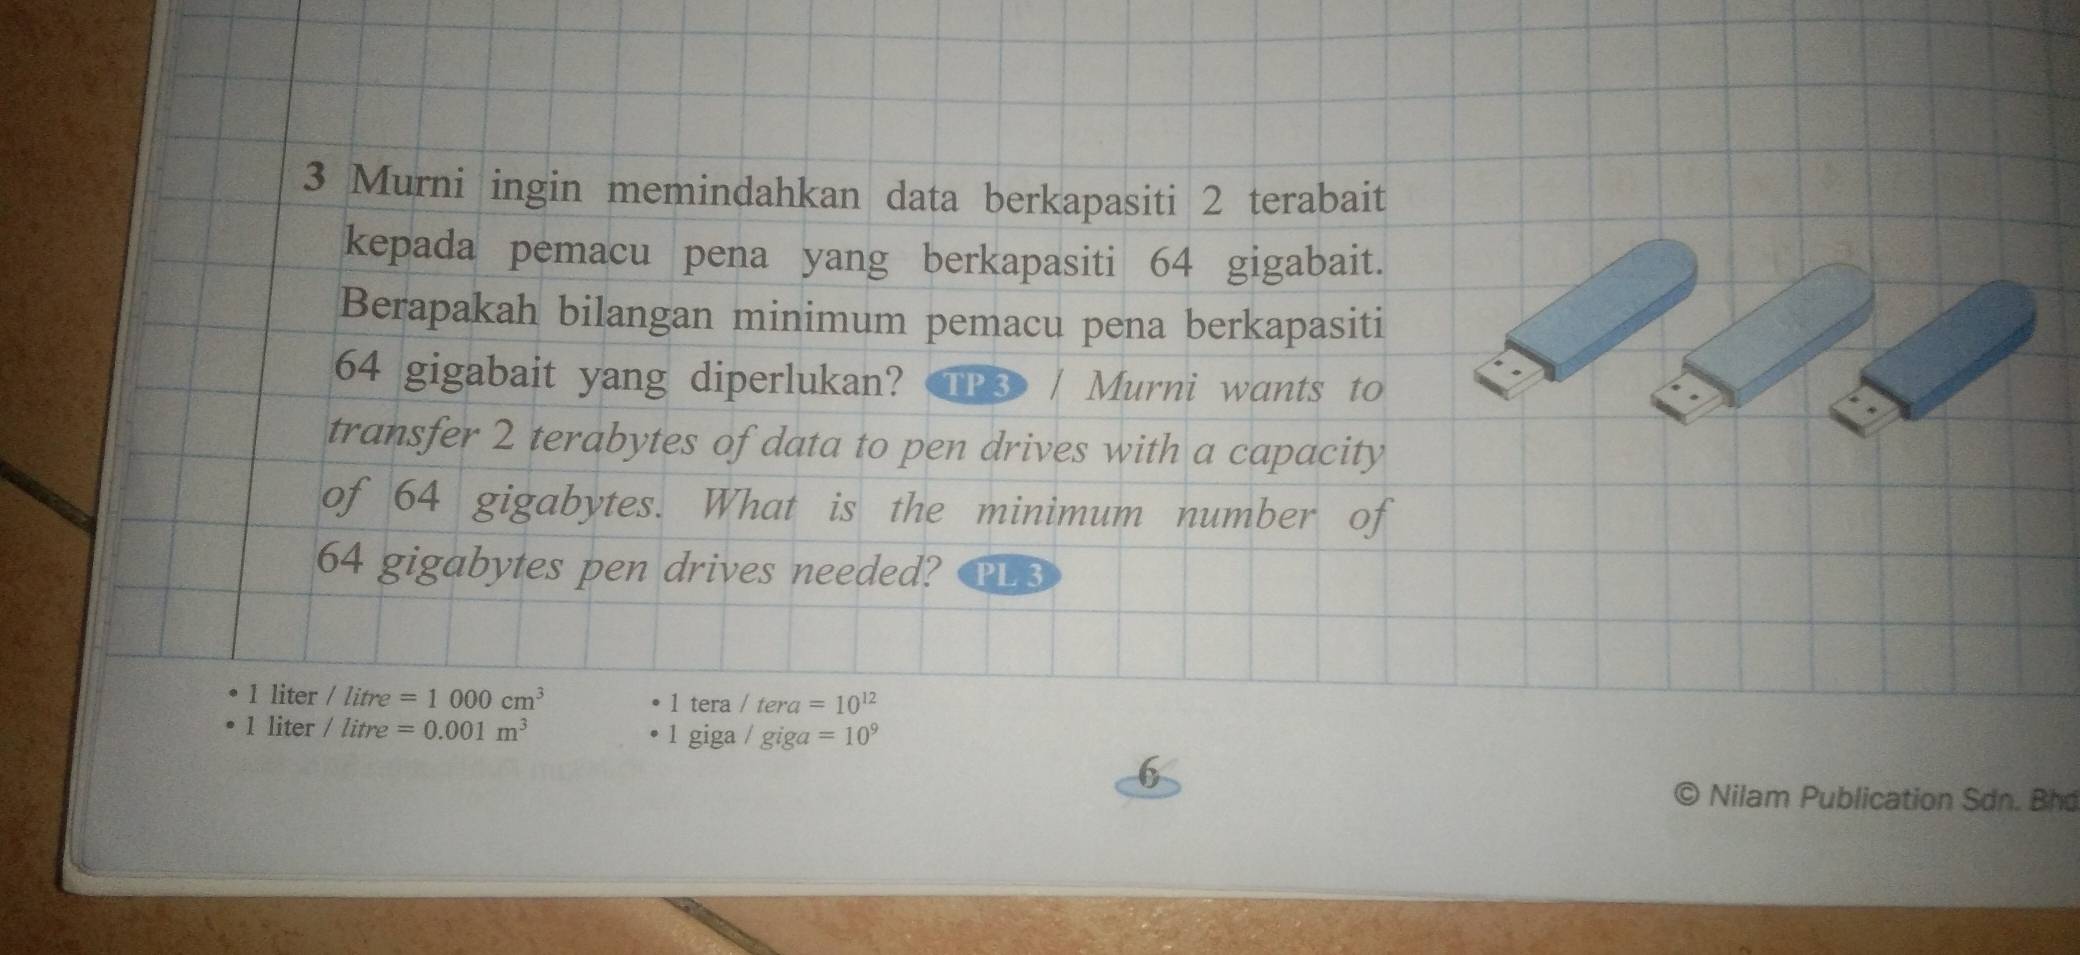 3 Murni ingin memindahkan data berkapasiti 2 terabait
kepada pemacu pena yang berkapasiti 64 gigabait.
Berapakah bilangan minimum pemacu pena berkapasiti
64 gigabait yang diperlukan? TP 3 / Murni wants to
transfer 2 terabytes of data to pen drives with a capacity
of 64 gigabytes. What is the minimum number of
64 gigabytes pen drives needed? PL 3
• 1 liter / litre = 1 000 cm³
• 1 liter / litre = 0.001 m³
• 1 tera / tera = 10¹²
• 1 giga / giga = 10⁹
6
© Nilam Publication Sdn. Bhd